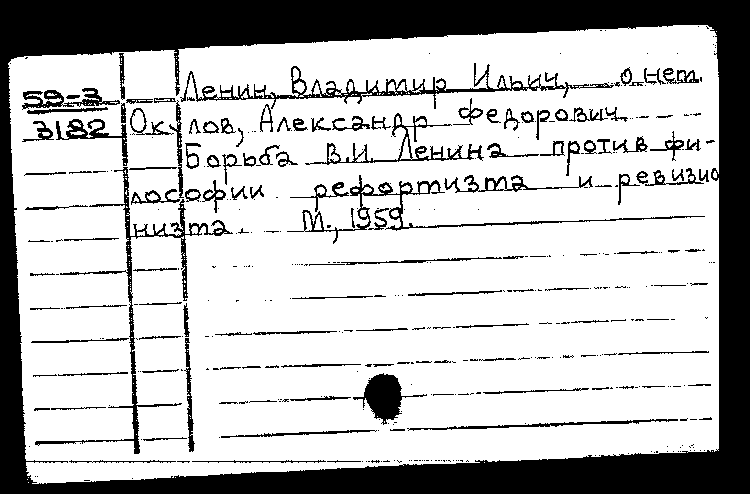 Ленин, Владимир Ильич, о нем.
59-3
3182 Окулов, Александр Федорович.
Борьба В.И. Ленина против фи-
лософии реформизма и ревизио
низма. М., 1959.